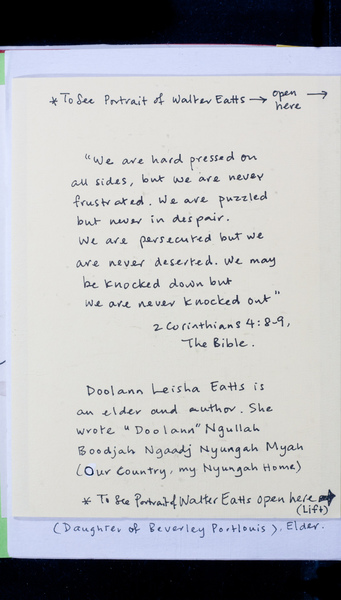 * To See Portrait of Walter Eatts → open here →
"We are hard pressed on
all sides, but we are never
frustrated. We are puzzled
but never in despair.
We are persecuted but we
are never deserted. We may
be knocked down but
we are never knocked out"
2 Corinthians 4:8-9,
The Bible.
Doolann Leisha Eatts is
an elder and author. She
wrote "Doolann" Ngullah
Boodjah Ngaadj Nyungah Myah
(Our Country, my Nyungah Home)
* To See Portrait of Walter Eatts open here →
(Lift)
(Daughter of Beverley Portlouis). Elder.